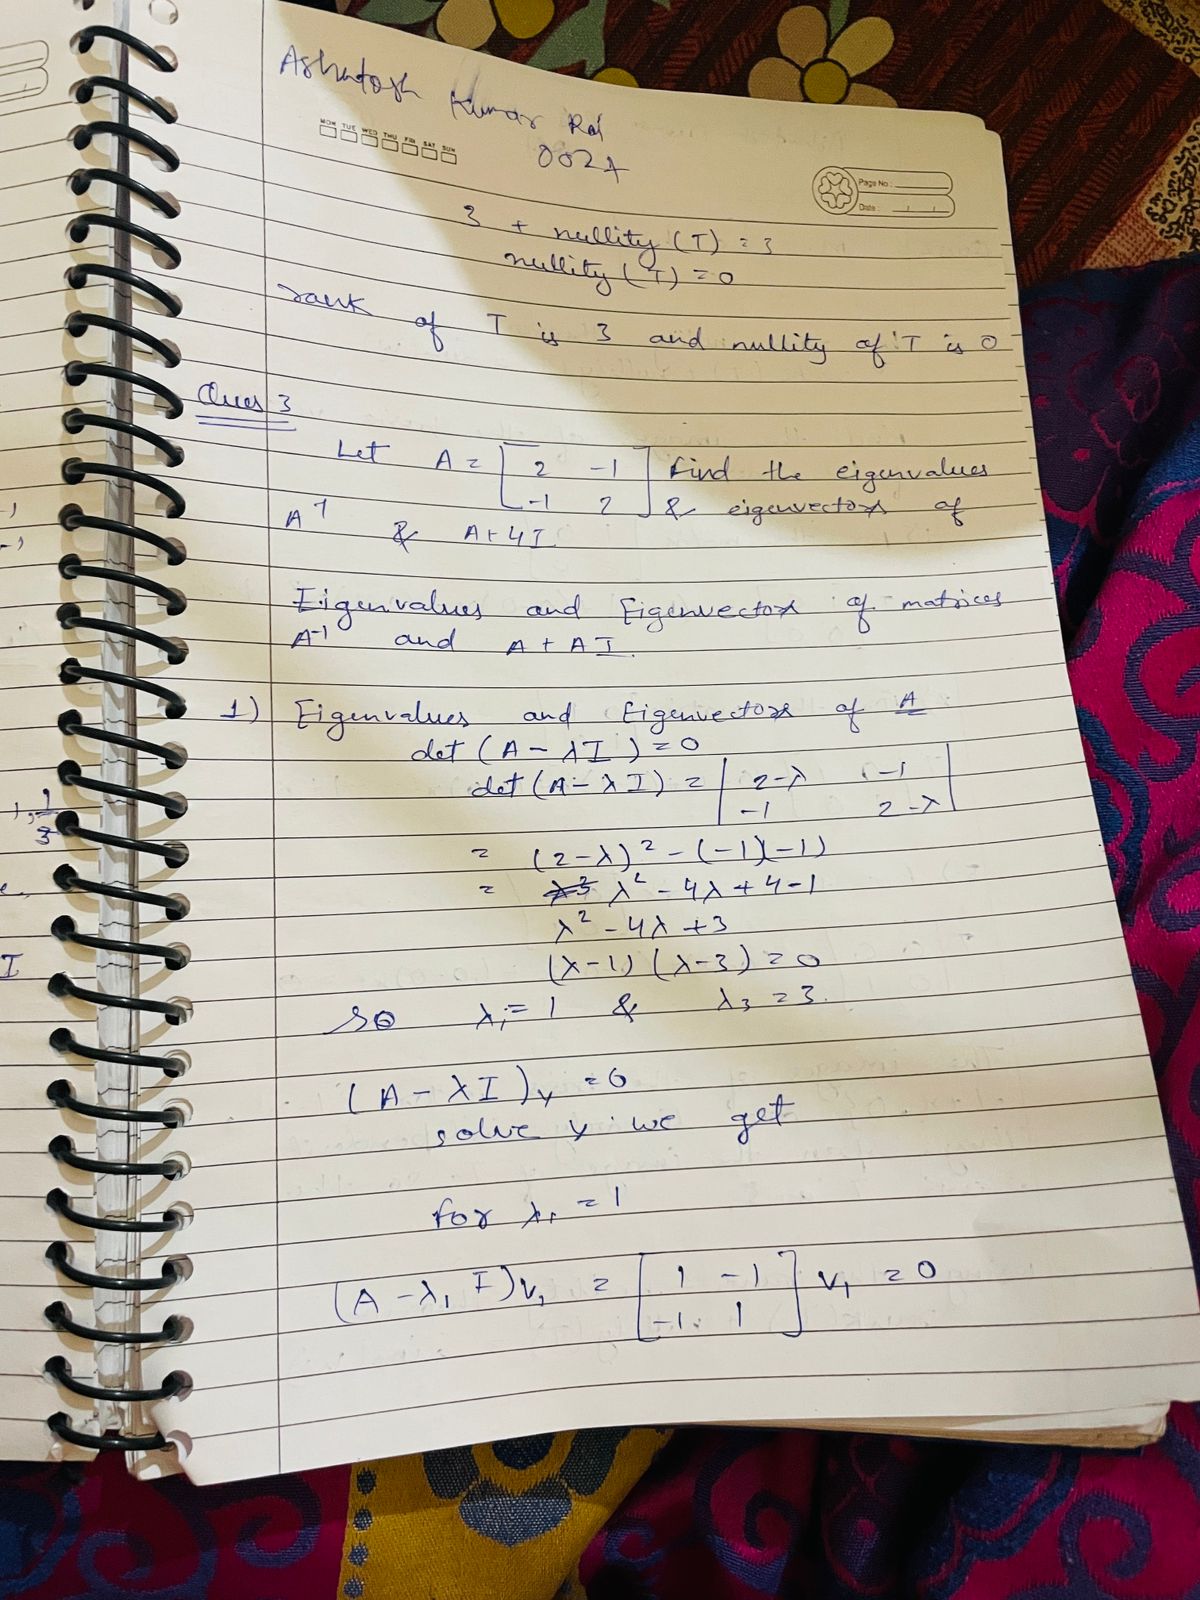 Ashutosh Kumar Rai
MON TUE WED THU FRI SAT SUN
002A
Page No :
Date :
3 + nullity (T) = 3
nullity (T) = 0
rank of T is 3 and nullity of T is 0
Ques 3
Let A = [ 2 -1 ] find the eigenvalues
[ -1 2 ] & eigenvectors of
A⁻¹ & A+4I
Eigenvalues and Eigenvectors of matrices
A⁻¹ and A + AI.
1) Eigenvalues and Eigenvectors of A
det (A - λI) = 0
det (A - λI) = | 2-λ -1 |
| -1 2-λ |
= (2-λ)² - (-1)(-1)
= λ² - 4λ + 4 - 1
λ² - 4λ + 3
(λ-1) (λ-3) = 0
so λ₁ = 1 & λ₃ = 3.
(A - λI)v = 0
solve v we get
for λ₁ = 1
(A - λ₁ I)v₁ = [ 1 -1 ] v₁ = 0
[ -1 1 ]
1
3
I